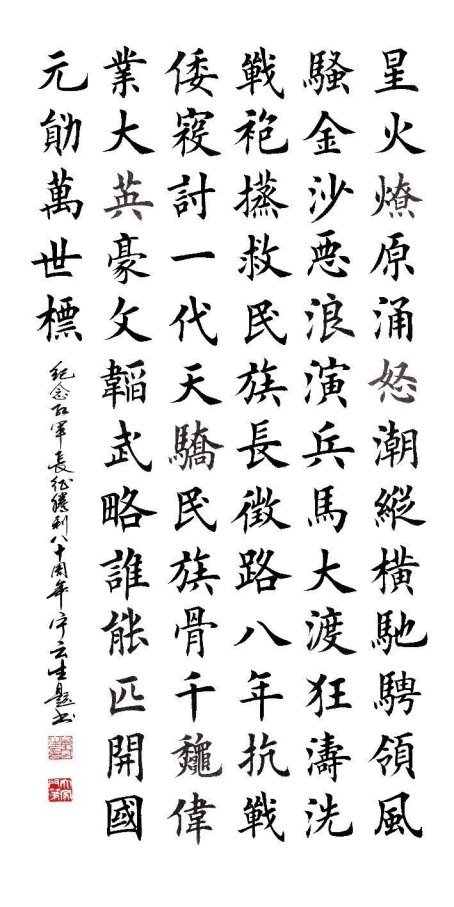 星火燎原涌怒潮縱橫馳騁領風
騷金沙惡浪演兵馬大渡狂濤洗
戰袍拯救民族長徵路八年抗戰
倭寇討一代天驕民族骨千龝偉
業大英豪文韜武略誰能匹開國
元勛萬世標
紀念紅軍長征勝利八十周年宁云生題书